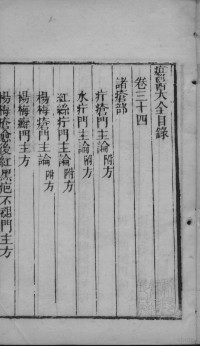 瘍醫大全目錄
卷三十四
諸瘡部
疔瘡門主論附方
水疔門主論附方
紅絲疔門主論附方
楊梅瘡門主論附方
楊梅癬門主方
楊梅瘡愈後紅黑疤不褪門主方